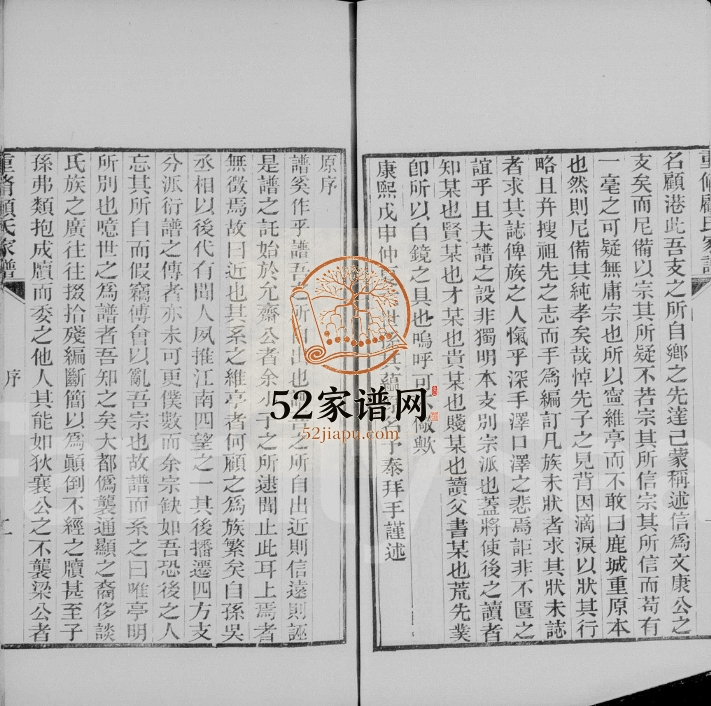 重修顧氏家譜
名顧港此吾支之所自鄉之先達已蒙稱述信爲文康公之
支矣而尼備以宗其所疑不若宗其所信宗其所信而苟有
一毫之可疑無庸宗也所以寧維亭而不敢曰鹿城重原本
也然則尼備其純孝矣哉悼先子之見背因滴淚以狀其行
略且幷搜祖先之志而手爲編訂凡族未狀者求其狀未誌
者求其誌俾族之人愾乎深手澤口澤之悲焉詎非不匱之
誼乎且夫譜之設非獨明本支別宗派也蓋將使後之讀者
知某也賢某也才某也貴某也賤某也讀父書某也荒先業
卽所以自鏡之具也嗚呼可 儆歟
康熙戊申仲 世 泰拜手謹述
原序
譜奚作乎譜吾之所 出也 之所自出近則信遠則誣
是譜之託始於允齋公者余小子之所逮聞止此耳上焉者
無徵焉故曰近也其系之維亭者何顧之爲族繁矣自孫吳
丞相以後代有聞人夙推江南四望之一其後播遷四方支
分派衍譜之傳者亦未可更僕數而余宗缺如吾恐後之人
忘其所自而假竊傅會以亂吾宗也故譜而系之曰唯亭明
所別也噫世之爲譜者吾知之矣大都僞襲通顯之裔侈談
氏族之廣往往掇拾殘編斷簡以爲顚倒不經之牘甚至子
孫弗類抱成牘而委之他人其能如狄襄公之不襲梁公者
重脩顧氏家譜
序
52家谱网
52jiapu.com